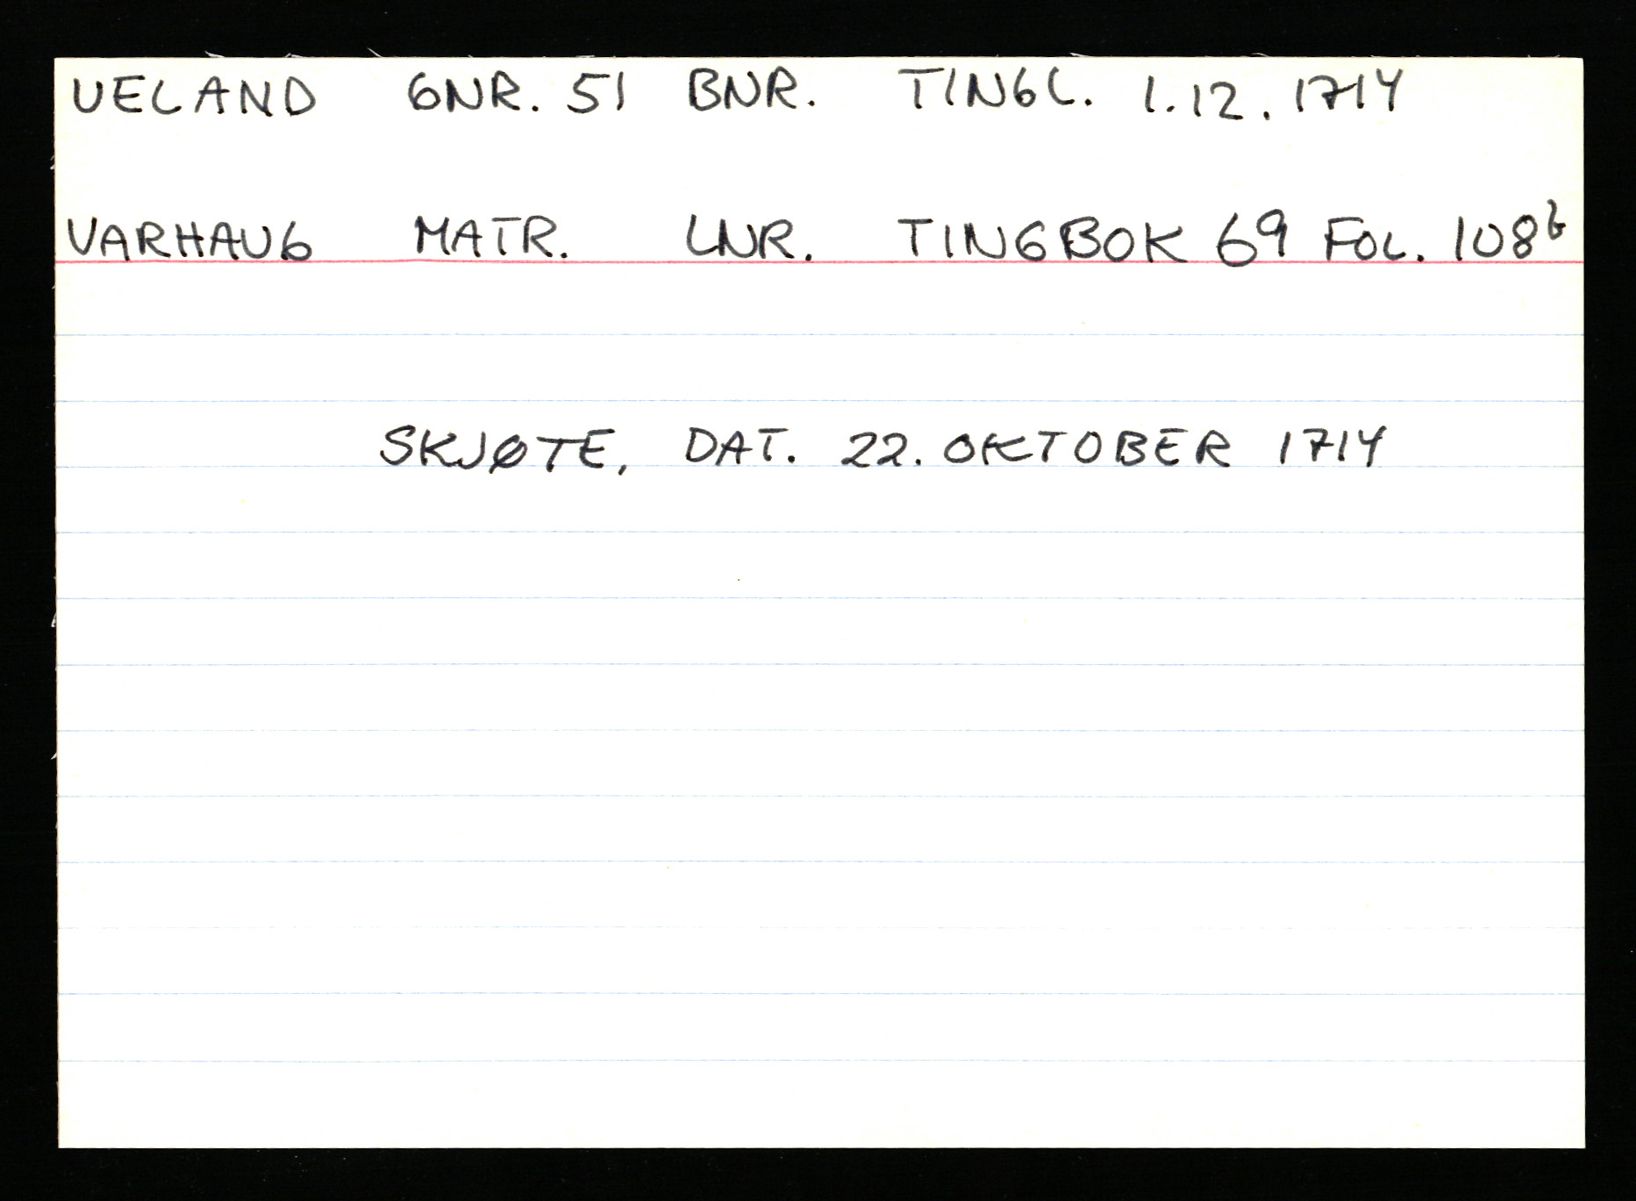 UELAND GNR. 51 BNR. TINGL. 1.12.1714
VARHAUG MATR. LNR. TINGBOK 69 FOL. 108b
SKJØTE, DAT. 22. OKTOBER 1714